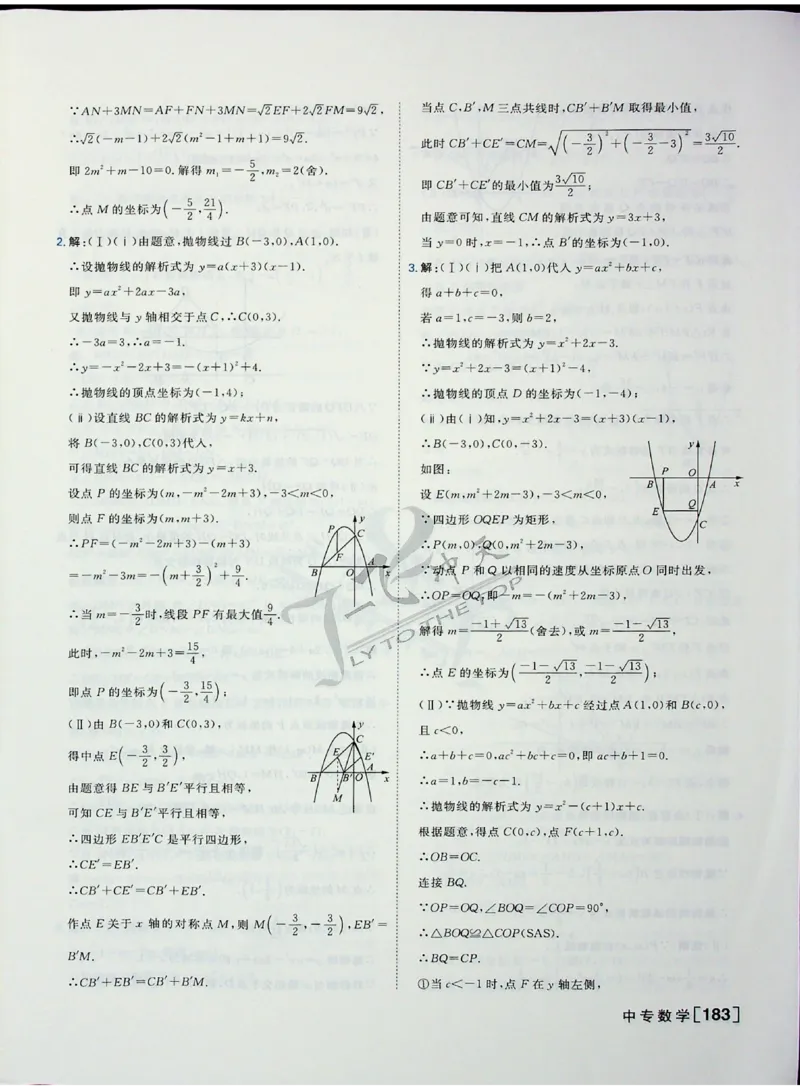 ∵AN+3MN=AF+FN+3MN=√2EF+2√2FM=9√2,
∴√2(-m-1)+2√2(m²-1+m+1)=9√2.
即 2m²+m-10=0.解得 m₁=-5/2,m₂=2(舍).
∴点 M 的坐标为(-5/2,21/4).
2.解:(Ⅰ)(ⅰ)由题意,抛物线过 B(-3,0),A(1,0).
∴设抛物线的解析式为 y=a(x+3)(x-1).
即 y=ax²+2ax-3a,
又抛物线与 y 轴相交于点 C,∴C(0,3).
∴-3a=3,∴a=-1.
∴y=-x²-2x+3=-(x+1)²+4.
∴抛物线的顶点坐标为(-1,4);
(ⅱ)设直线 BC 的解析式为 y=kx+n,
将 B(-3,0),C(0,3)代人,
可得直线 BC 的解析式为 y=x+3.
设点 P 的坐标为(m,-m²-2m+3),-3<m<0,
则点 F 的坐标为(m,m+3).
∴PF=(-m²-2m+3)-(m+3)
=-m²-3m=-(m+3/2)²+9/4.
∴当 m=-3/2时,线段 PF 有最大值9/4.
此时,-m²-2m+3=15/4,
即点 P 的坐标为(-3/2,15/4);
P
y
C
F
B
O
A
x
(Ⅱ)由 B(-3,0)和 C(0,3),
得中点 E(-3/2,3/2),
由题意得 BE 与 B′E′平行且相等,
可知 CE 与 B′E′平行且相等,
∴四边形 EB′E′C 是平行四边形,
∴CE′=EB′.
∴CB′+CE′=CB′+EB′.
作点 E 关于 x 轴的对称点 M,则 M(-3/2,-3/2),EB′=
B′M.
∴CB′+EB′=CB′+B′M.
y
C
E
E′
B
B′
O
A
x
M
当点 C,B′,M 三点共线时,CB′+B′M 取得最小值,
此时 CB′+CE′=CM=√((-3/2)²+(-3/2-3)²)=3√10/2.
即 CB′+CE′的最小值为3√10/2;
由题意可知,直线 CM 的解析式为 y=3x+3,
当 y=0 时,x=-1,∴点 B′的坐标为(-1,0).
3.解:(Ⅰ)(ⅰ)把 A(1,0)代人 y=ax²+bx+c,
得 a+b+c=0,
若 a=1,c=-3,则 b=2,
∴抛物线的解析式为 y=x²+2x-3.
∵y=x²+2x-3=(x+1)²-4,
∴抛物线的顶点 D 的坐标为(-1,-4);
(ⅱ)由(ⅰ)知,y=x²+2x-3=(x+3)(x-1),
∴B(-3,0),C(0,-3).
如图:
设 E(m,m²+2m-3),-3<m<0,
∵四边形 OQEP 为矩形,
∴P(m,0),Q(0,m²+2m-3),
∵动点 P 和 Q 以相同的速度从坐标原点 O 同时出发,
∴OP=OQ,即-m=-(m²+2m-3),
解得 m=(-1+√13)/2(舍去),或 m=(-1-√13)/2,
∴点 E 的坐标为((-1-√13)/2,(-1-√13)/2);
y
P
O
B
A
x
E
Q
C
(Ⅱ)∵抛物线 y=ax²+bx+c 经过点 A(1,0)和 B(c,0),
且 c<0,
∴a+b+c=0,ac²+bc+c=0,即 ac+b+1=0.
∴a=1,b=-c-1.
∴抛物线的解析式为 y=x²-(c+1)x+c.
根据题意,得点 C(0,c),点 F(c+1,c).
∴OB=OC.
连接 BQ.
∵OP=OQ,∠BOQ=∠COP=90°,
∴△BOQ≌△COP(SAS).
∴BQ=CP.
①当 c<-1 时,点 F 在 y 轴左侧,
中专数学[183]